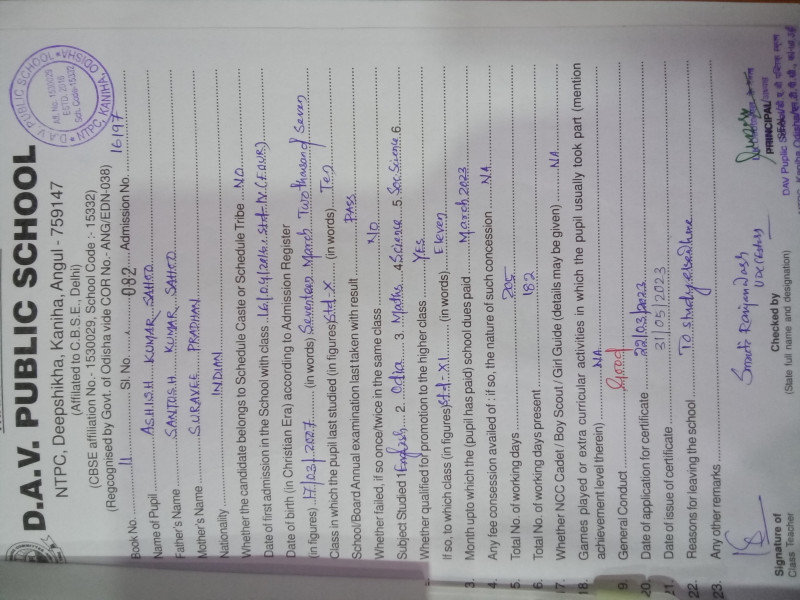 D.A.V. PUBLIC SCHOOL
NTPC, Deepshikha, Kaniha, Angul - 759147
(Affiliated to C.B.S.E., Delhi)
(CBSE affiliation No.- 1530029, School Code :- 15332)
(Regcognised by Govt. of Odisha vide COR No.- ANG/EDN-038)
D.A.V. PUBLIC SCHOOL
Aff. No. 1530029
ESTD. 2016
Sch. Code-15332
NTPC, KANIHA, ODISHA
Book No. 11 Sl. No. 082 Admission No. 16197
Name of Pupil ASHISH KUMAR SAHOO
Father's Name SANTOSH KUMAR SAHOO
Mother's Name SURAVEE PRADHAN
Nationality INDIAN
Whether the candidate belongs to Schedule Caste or Schedule Tribe NO
Date of first admission in the School with class 16/04/2016. Std-IV
Date of birth (in Christian Era) according to Admission Register
(in figures) 17/03/2007 (in words) Seventeen March Two thousand Seven
Class in which the pupil last studied (in figures) Std-X (in words) Ten
School/Board Annual examination last taken with result PASS
Whether failed, if so once/twice in the same class NO
Subject Studied 1 English 2. Odia 3. Maths 4 Science 5. Soc.Science 6
Whether qualified for promotion to the higher class YES
If so, to which class (in figures) Std-XI (in words) Eleven
3. Month upto which the (pupil has paid) school dues paid March 2023
4. Any fee consession availed of : if so, the nature of such concession NA
5. Total No. of working days 205
6. Total No. of working days present 182
17. Whether NCC Cadet / Boy Scout / Girl Guide (details may be given) NA
18. Games played or extra curricular activities in which the pupil usually took part (mention
achievement level therein) NA
9. General Conduct Good
20. Date of application for certificate 22/03/2023
21. Date of issue of certificate 31/05/2023
22. Reasons for leaving the school To study elsewhere
23. Any other remarks
Signature of
Class Teacher
Checked by
(State full name and designation)
PRINCIPAL
SEAL
DAV Public School